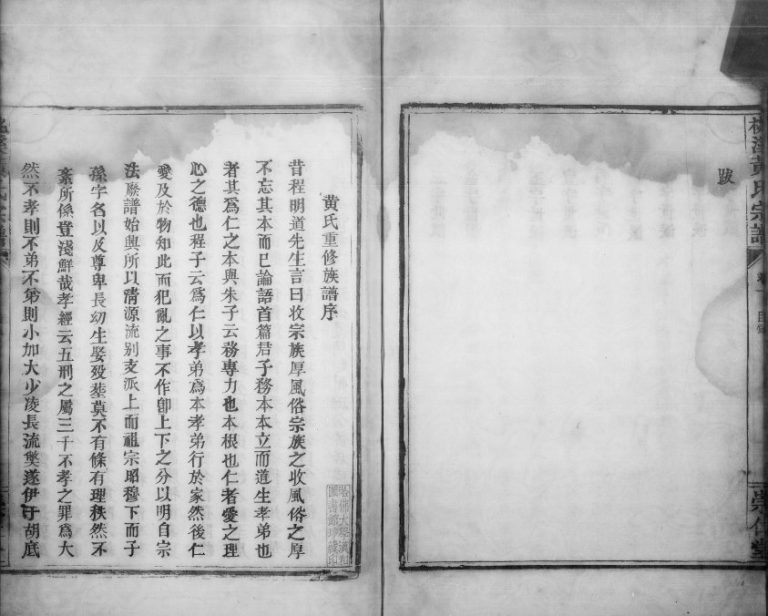 跋
黄氏重修族譜序
昔程明道先生言曰收宗族厚風俗宗族之收風俗之厚
不忘其本而已論語首篇君子務本本立而道生孝弟也
者其爲仁之本與朱子云務專力也本根也仁者愛之理
心之德也程子云爲仁以孝弟爲本孝弟行於家然後仁
愛及於物知此而犯亂之事不作卽上下之分以明自宗
法廢譜始興所以清源流别支派上而祖宗昭穆下而子
孫字名以及尊卑長幼生娶歿塟莫不有條有理秩然不
紊所係豈淺鮮哉孝經云五刑之屬三千不孝之罪爲大
然不孝則不弟不弟則小加大少凌長流獘遂伊于胡底
黄氏宗譜